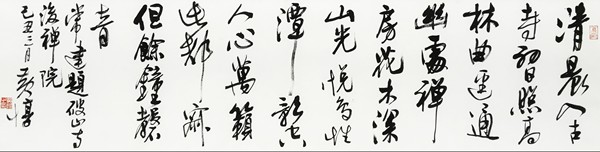 清晨入古
寺初日照高
林曲径通
幽處禅
房花木深
山光悦鸟性
潭影空
人心萬籁
此都寂
但餘鐘磬
音
常建题破山寺
後禅院
己丑三月